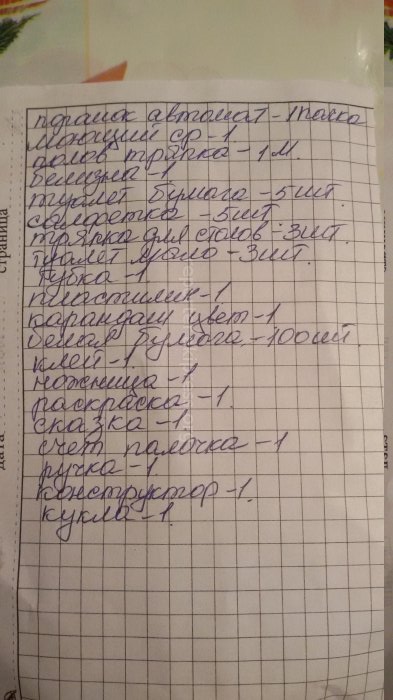 порашок автомат - 1 пачка
моющий ср - 1
полов тряпка - 1 м.
белизна - 1
туалет бумага - 5 шт.
салфетка - 5 шт
тряпка для столов - 3 шт.
туалет мыло - 3 шт.
губка - 1
пластилин - 1
карандаш цвет - 1
белая бумага - 100 шт
клей - 1
ножница - 1
раскраска - 1.
сказка - 1
счет палочка - 1
ручка - 1.
конструктор - 1
кукла - 1.
страница
дата